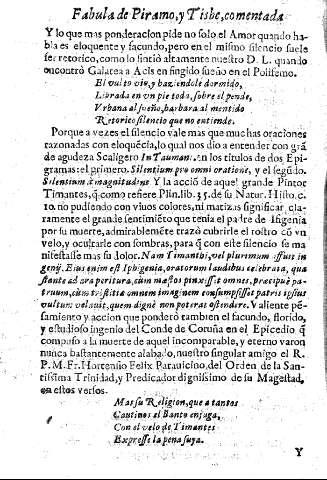 Fabula de Piramo, y Tisbe, comentada
Y lo que mas ponderacion pide no solo el Amor quando ha-
bla es eloquente y facundo, pero en el mismo silencio suele
ser retorico, como lo sintiò altamente nuestro D. L. quando
encontrò Galatea a Acis en fingido sueño en el Polifemo.
El vulto viò, y haziendole dormido,
Librada en vn pie toda, sobre el pende,
Vrbana al sueño, barbara al mentido
Retorico silencio que no entiende.
Porque a vezes el silencio vale mas que muchas oraciones
razonadas con eloquẽcia, lo qual nos dio a entender con grã
de agudeza Scaligero In Tauman. en los titulos de dos Epi-
gramas: el primero. Silentium pro omni oratione, y el segũdo.
Silentium magnitudine Y la acciõ de aquel grande Pintor
Timantes, q̃ como refiere Plin. lib. 35. de su Natur. Histo. c.
10. no pudiendo con viuos colores, ni matizas significar, cla-
ramente el grande sentimiẽto que tenia el padre de Ifigenia
por su muerte, admirablemẽte trazò cubrirle el rostro cõ vn
velo, y ocultarle con sombras, para q̃ con este silencio se ma
nifestasse mas su dolor. Nam Timanthi, vel plurimum affuit in-
genij. Eius enim est Iphigenia, oratorum laudibus celebrata, qua
stante ad ara peritura, cùm mæstos pinxisset omnes, præcipuè pa-
truum, cùm tristitiæ omnem imaginem consumpsisset patris ipsius
vultum velauit, quem dignè non poterat ostendere. Valiente pẽ-
samiento y accion que ponderò tambien el facundo, florido,
y estudioso ingenio del Conde de Coruña en el Epicedio q̃
compuso a la muerte de aquel incomparable, y eterno varon
nunca bastantemente alabado, nuestro singular amigo el R.
P. M. Fr. Hortensio Felix Parauicino, del Orden de la San-
tissima Trinidad, y Predicador dignissimo de su Magestad,
en estos versos.
Mas su Religion, que a tantos
Cautiuos el llanto enjuga,
Con el velo de Timantes
Expresse la pena suya.
Y